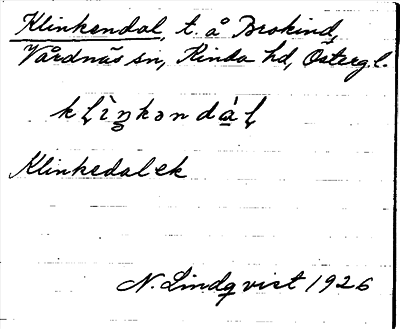 Klinkendal, t. å Brokind,
Vårdnäs sn, Kinda hd, Östergl.
Klinkedal ek
N. Lindqvist 1926